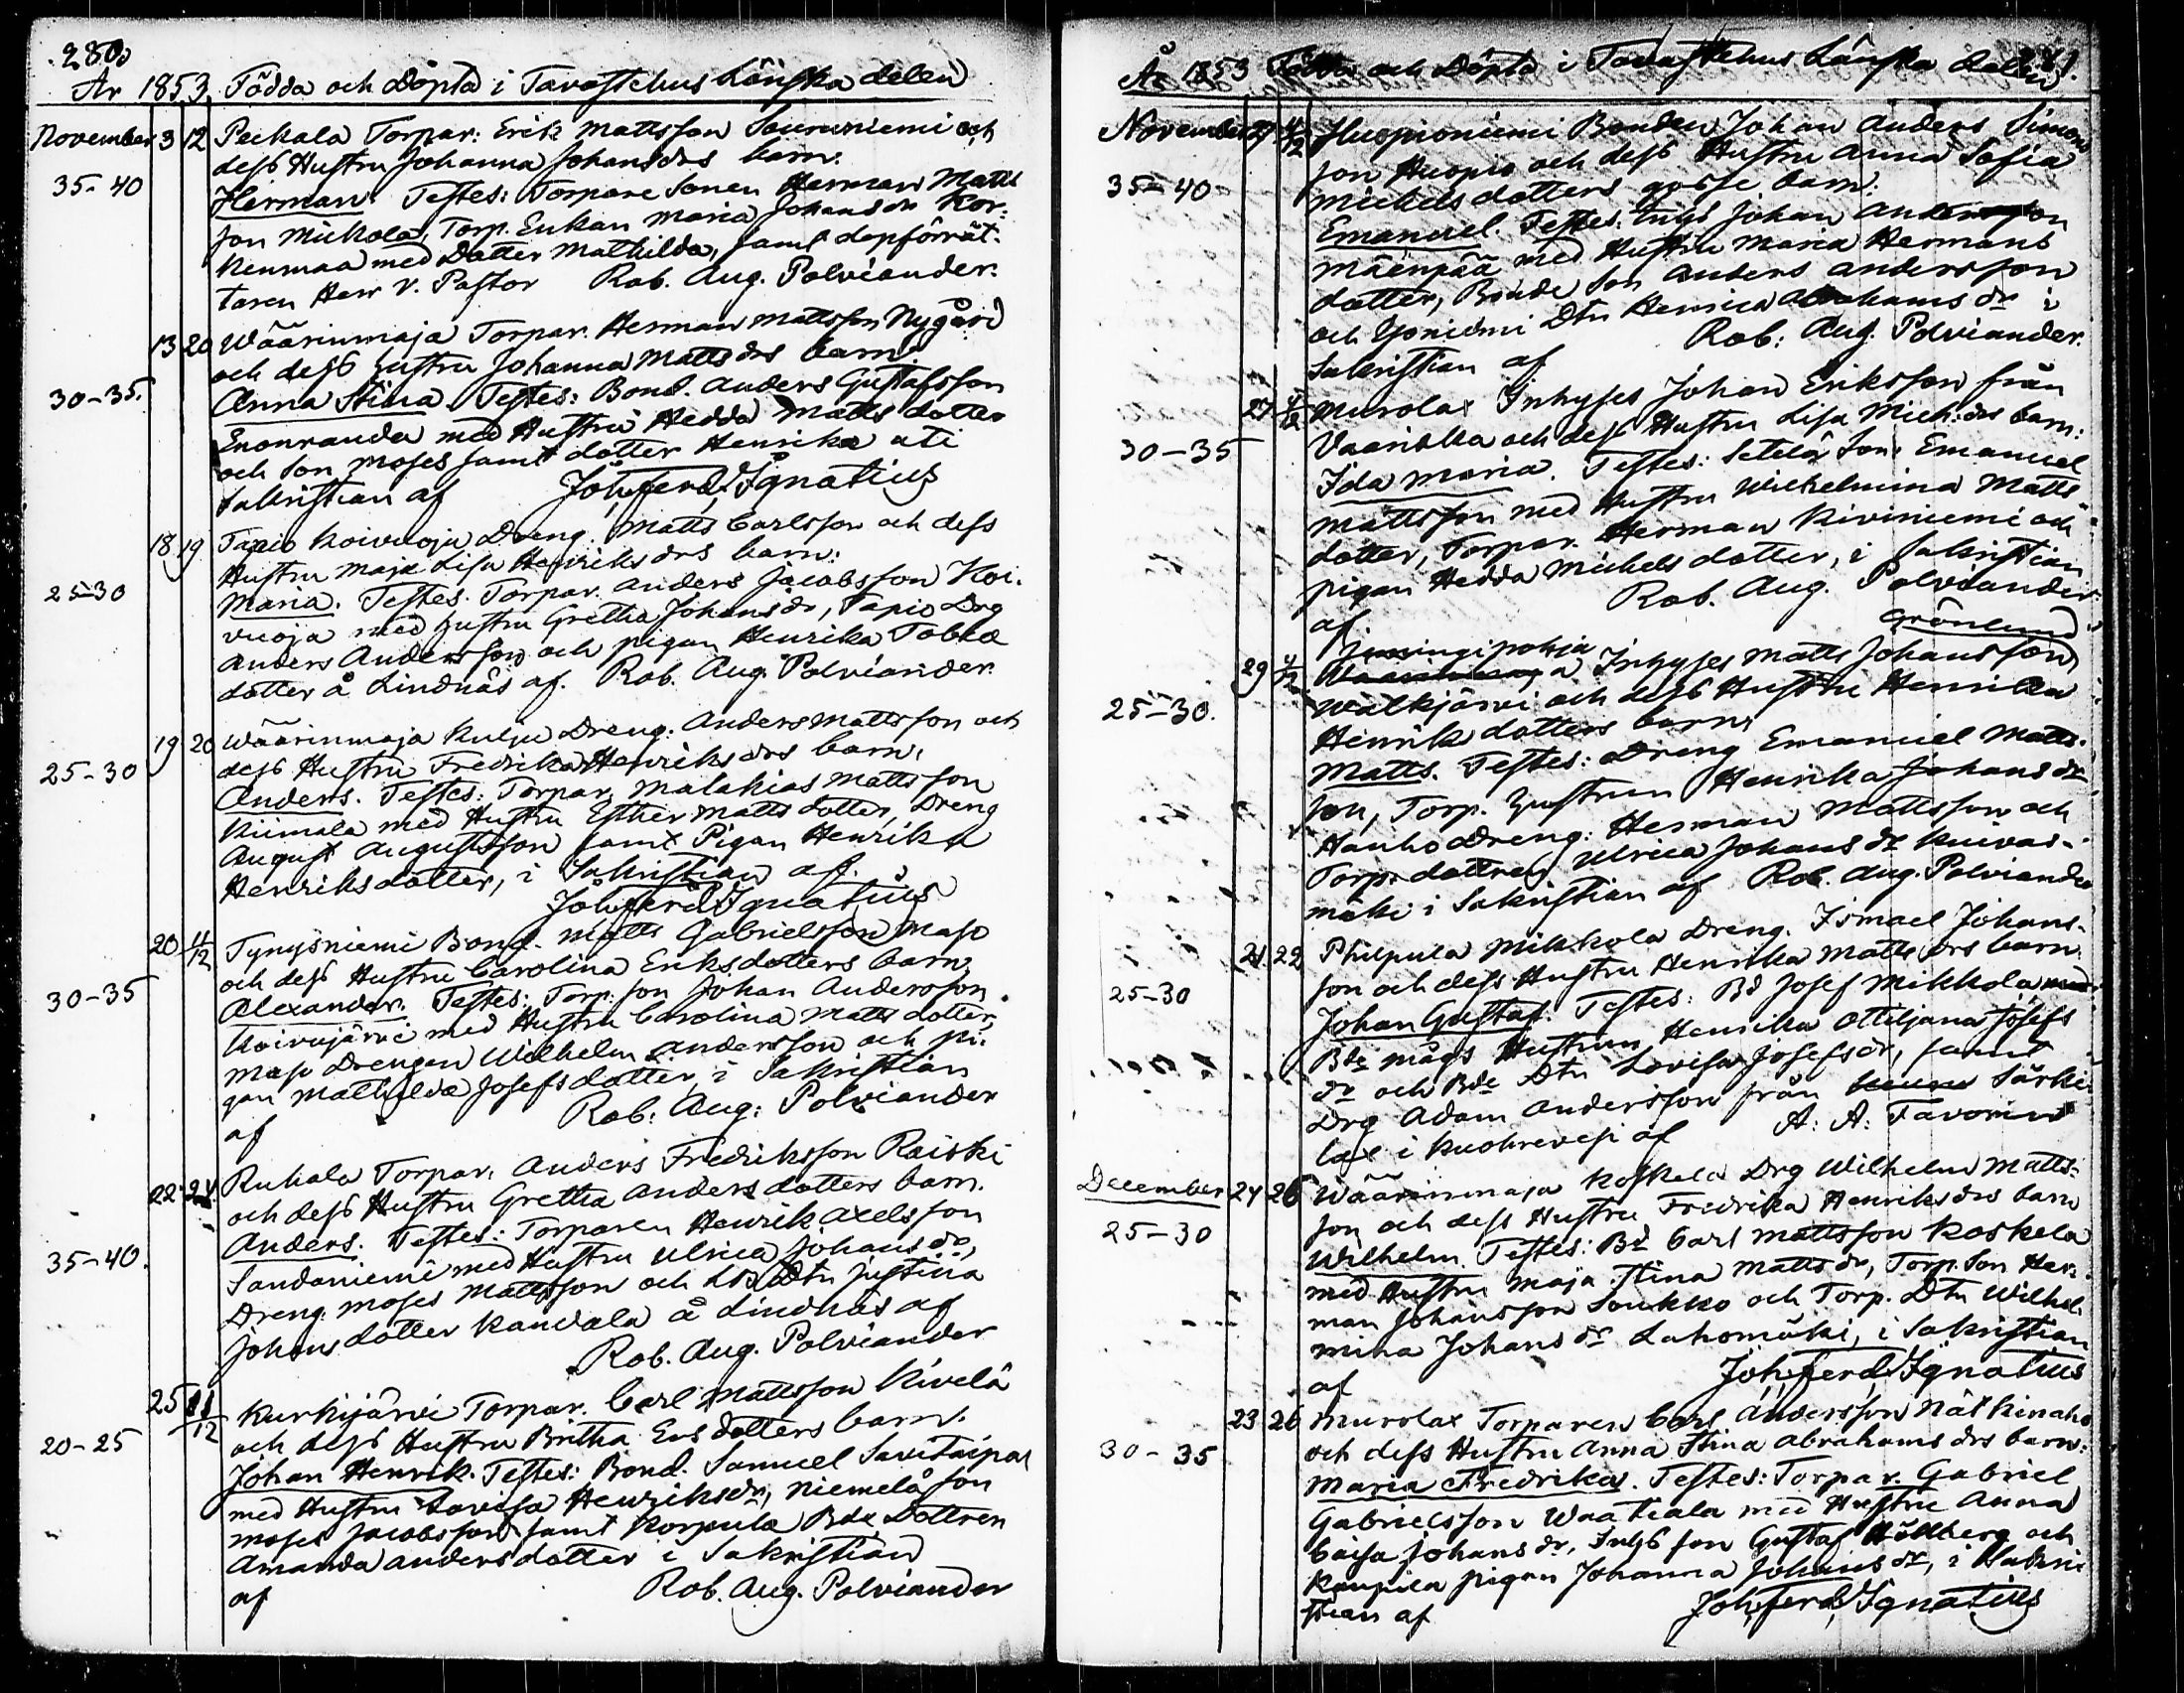 280.
År 1853. Födda och Döpta i Tavastehus Länska delen
November 3 12 Peckala Torpar: Erik Mattsson Souruniemi och
dess Hustru Johanna Johansdrs barn.
35-40
Herman. Testes: Torpare Sonen Herman Matts
son Mickola, Torp. Enkan Maria Johansdr Kor-
kenmaa med Dotter Mathilda, samt dopförrät-
taren Herr V. Pastor Rob. Aug. Polviander.
13 20 Wäärinmaja Torpar. Herman Mattsson Nygård
och dess Hustru Johanna Mattsdrs barn.
30-35.
Anna Stina. Testes: Bond. Anders Gustafsson
Enonranda med Hustru Hedda Matts dotter
och Son Moses samt dotter Henrika uti
Sakristian af Joh. Ferd. Ignatius
18 19 Tapio Koivuoja Dreng. Matts Carlsson och dess
Hustru Maja Lisa Henriksdrs barn.
25-30
Maria. Testes. Torpar. Anders Jacobsson Koi-
vuoja med Hustru Gretha Johansdr, Tapio Drg
Anders Andersson och pigan Henrika Tobias
dotter å Lindnäs af. Rob. Aug. Polviander.
19 20 Wäärinmaja Kulju Dreng. Anders Mattsson och
dess Hustru Fredrika Henriksdrs barn.
25-30
Anders. Testes: Torpar. Malakias Mattsson
Kiimala med Hustru Esther Matts dotter, Dreng
August Augustsson samt Pigan Henrika
Henriksdotter, i Sakristian af.
Joh. Ferd. Ignatius
20 4/12 Tynysniemi Bond. Matts Gabrielsson Maso
och dess Hustru Carolina Eriksdotters barn
30-35
Alexander. Testes: Torp. son Johan Andersson
Koivujärvi med Hustru Carolina Matts dotter,
Maso Drengen Wilhelm Andersson och pi-
gan Mathilda Josefsdotter, i Sakristian
af Rob. Aug. Polviander
22 24 Ruhala Torpar. Anders Fredriksson Raiski
och dess Hustru Gretha Anders dotters barn.
Anders. Testes: Torparen Henrik Axelsson
35-40.
Sandaniemi med Hustru Ulrica Johansdr,
Dreng Moses Mattsson och Dtr Justina
Johans dotter Kandala å Lindnäs af
Rob. Aug. Polviander
25 11/12 Kurkijärvi Torpar. Carl Mattsson Kivelä
och dess Hustru Britha Ersdotters barn.
20-25
Johan Henrik. Testes: Bond. Samuel Savitaipal
med Hustru Lovisa Henriksdr, Niemelä son
Moses Jacobsson samt Korpula Bde Dottren
Amanda Andersdotter i Sakristian
af Rob. Aug. Polviander
År 1853 Födda och Döpta i Tavastehus Länska delen 281.
November 27 4/12 Huopioniemi Bonden Johan Anders Simons
son Huopio och dess Hustru Anna Sofia
35-40
Michelsdotters gosse barn.
Emanuel. Testes: Inhys Johan Andersson
Mäenpää med Hustru Maria Hermans
dotter, Bonde Son Anders Andersson
och Yöniemi Dtr Henrica Abrahams dr i
Sakristian af Rob. Aug. Polviander.
27 4/12 Murolax Inhyses Johan Eriksson från
Vaariskka och dess Hustru Lisa Mich:drs barn:
30-35
Ida Maria. Testes: Setelä Son Emanuel
Mattsson med Hustru Wilhelmina Matts
dotter, Torpar. Herman Kiviniemi och
pigan Hedda Michelsdotter, i Sakristian
af Rob. Aug. Polviander.
Grönlund
29 4/12 Inhyses Matts Johansson
Walkjärvi och dess Hustru Henrika
25-30.
Henriksdotters barn
Matts. Testes: Dreng Emanuel Matts-
son, Torp. Hustrun Henrika Johansdr
Hanho Dreng. Herman Mattsson och
Torp. dottren Ulrica Johansdr Kuivas-
mäki i Sakristian af Rob. Aug. Polviander
21. 22 Philpula Mikkola Dreng. Ismael Johans-
son och dess Hustru Henrika Mattsdrs barn
25-30
Johan Gustaf. Testes: Bd Josef Mikkola
Bde mågs Hustrun Henrika Ottiljana Josefs
dr och Bde Dtr Lovisa Josefsdr, samt
Drg Adam Andersson från Särki-
lax i Kuohrevesi af A. A. Favorin
December 24 26 Wäärinmaja Koskela Drg Wilhelm Matts-
son och dess Hustru Fredrika Henriksdrs barn
25-30
Wilhelm. Testes: Bd Carl Mattsson Koskela
med Hustru Maja Stina Mattsdr, Torp. Son Her-
man Johansson Soukko och Torp. Dtr Wilhel-
mina Johansdr Lahomäki, i Sakristian
af Joh. Ferd. Ignatius
23 26 Murolax Torparen Carl Andersson Nätkinaho
och dess Hustru Anna Stina Abrahamsdrs barn.
30-35
Maria Fredrika. Testes: Torpar. Gabriel
Gabrielsson Waatiala med Hustru Anna
Caisa Johansdr, Inhs son Gustaf Hällberg och
Kaupila pigan Johanna Johansdr, i Sakri-
stian af Joh. Ferd. Ignatius